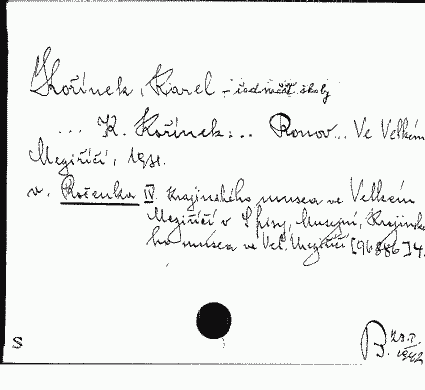 Kořínek, Karel - školy
... K. Kořínek: .. Ronov.. Ve Velkém
Meziříčí, 1931.
v. Ročenka IV. Krajinského musea ve Velkém
Meziříčí v Spisy, Musejní, Krajinské
ho musea ve Vel. Meziříčí [96886] 4.
S
B. 28.I.
1942